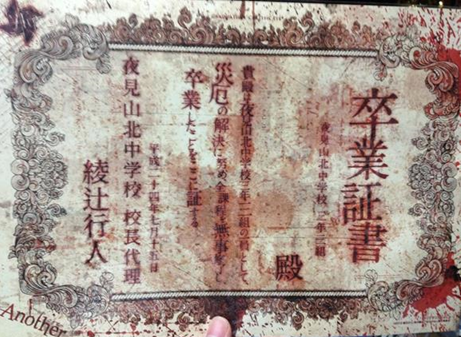 卒業証書
夜見山北中学校 三年三組
殿
貴殿は夜見山北中学校三年三組の一員として、
災厄の解決に努め全課程を無事
卒業したことをここに証する
平成二十四年七月十五日
夜見山北中学校 校長代理
綾辻行人
Another